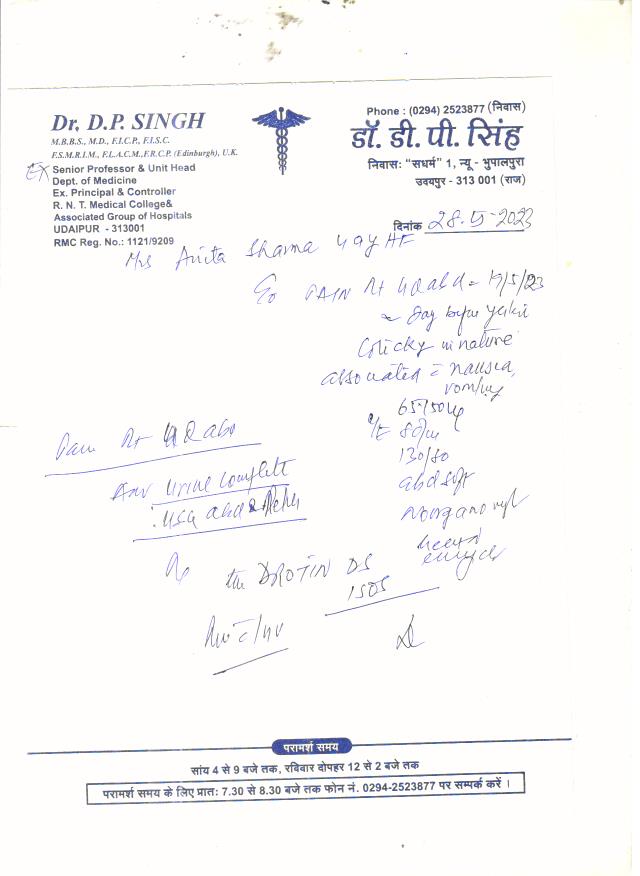 Dr. D.P. SINGH
M.B.B.S., M.D., F.I.C.P., F.I.S.C.
F.S.M.R.I.M., F.L.A.C.M.,F.R.C.P. (Edinburgh), U.K.
EX Senior Professor & Unit Head
Dept. of Medicine
Ex. Principal & Controller
R. N. T. Medical College&
Associated Group of Hospitals
UDAIPUR - 313001
RMC Reg. No.: 1121/9209
Phone : (0294) 2523877 (निवास)
डॉ. डी. पी. सिंह
निवासः "सधर्म" 1, न्यू - भुपालपुरा
उदयपुर - 313 001 (राज)
दिनांक 28.5.2023
Mrs Anita Sharma 49y HF
PAIN Rt UQ abd = 19/5/23
before
Colicky in nature
associated = nausea,
vomiting
80/m
130/80
abd soft
Pain Rt UQ abd
Adv Urine complete
USG abd &
DROTIN DS
1 SOS
परामर्श समय
सांय 4 से 9 बजे तक, रविवार दोपहर 12 से 2 बजे तक
परामर्श समय के लिए प्रातः 7.30 से 8.30 बजे तक फोन नं. 0294-2523877 पर सम्पर्क करें ।